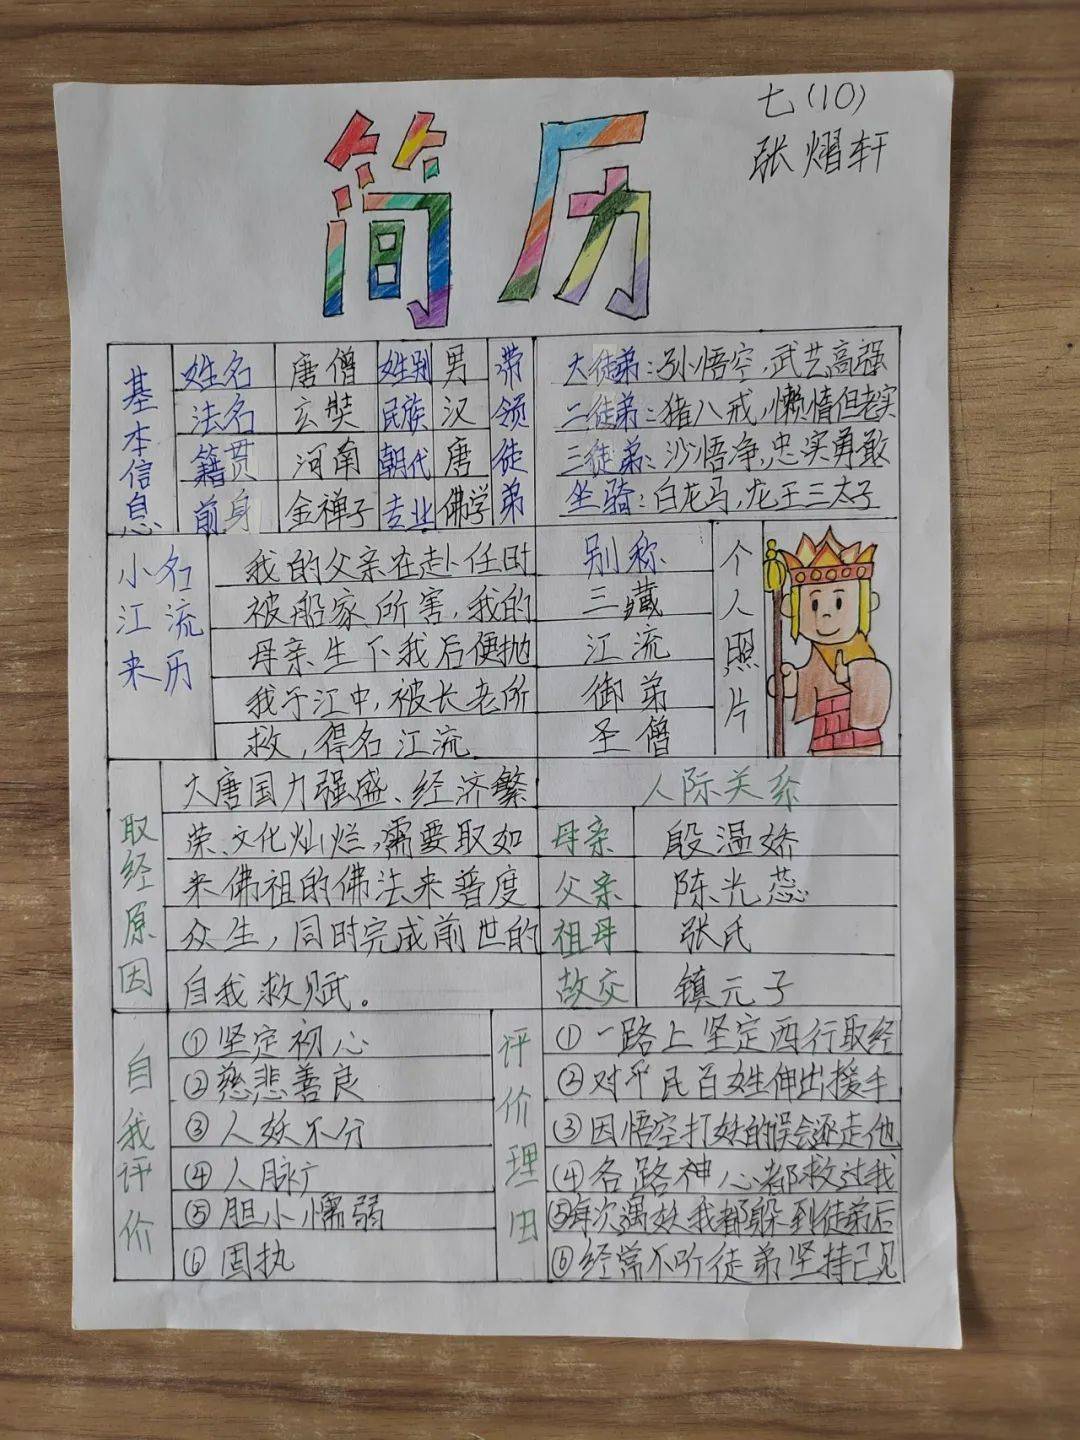 七(10)
张熠轩
简历
基本信息
姓名 唐僧 姓别 男
法名 玄奘 民族 汉
籍贯 河南 朝代 唐
前身 金禅子 专业 佛学
带领徒弟
大徒弟:孙悟空,武艺高强
二徒弟:猪八戒,懒惰但老实
三徒弟:沙悟净,忠实勇敢
坐骑:白龙马,龙王三太子
小名
江流
来历
我的父亲在赴任时
被船家所害,我的
母亲生下我后便抛
我于江中,被长老所
救,得名江流
别称
三藏
江流
御弟
圣僧
个人照片
取经原因
大唐国力强盛、经济繁
荣、文化灿烂,需要取如
来佛祖的佛法来普度
众生,同时完成前世的
自我救赋。
人际关系
母亲 殷温娇
父亲 陈光蕊
祖母 张氏
故交 镇元子
自我评价
①坚定初心
②慈悲善良
③人妖不分
④人脉广
⑤胆小懦弱
⑥固执
评价理由
①一路上坚定西行取经
②对平民百姓伸出援手
③因悟空打妖的误会还走他
④各路神心都救过我
⑤每次遇妖我都躲到徒弟后
⑥经常不听徒弟坚持己见